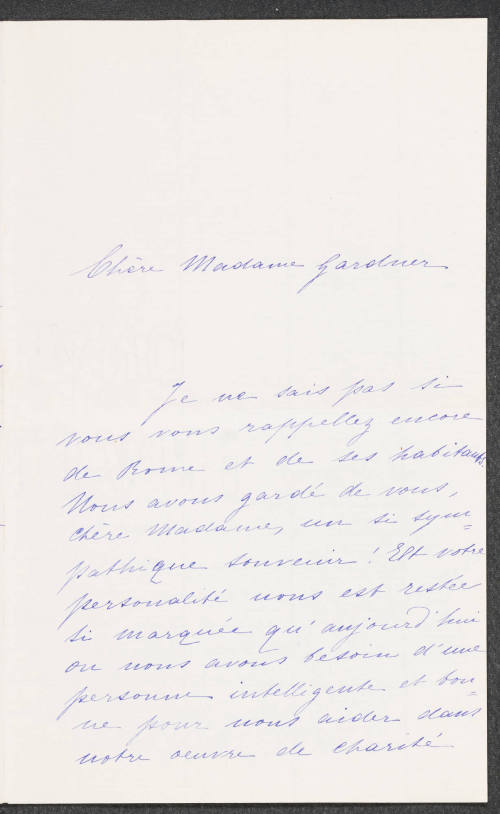 Chère Madame Gardner
Je ne sais pas si
vous vous rappellez encore
de Rome et de ses habitants.
Nous avons gardé de vous,
chère Madame, un si sym=
pathique souvenir! Et votre
personalité nous est restée
si marquée qu'aujourd'hui
ou nous avons besoin d'une
personne intelligente et bon=
ne pour nous aider dans
notre oeuvre de charité